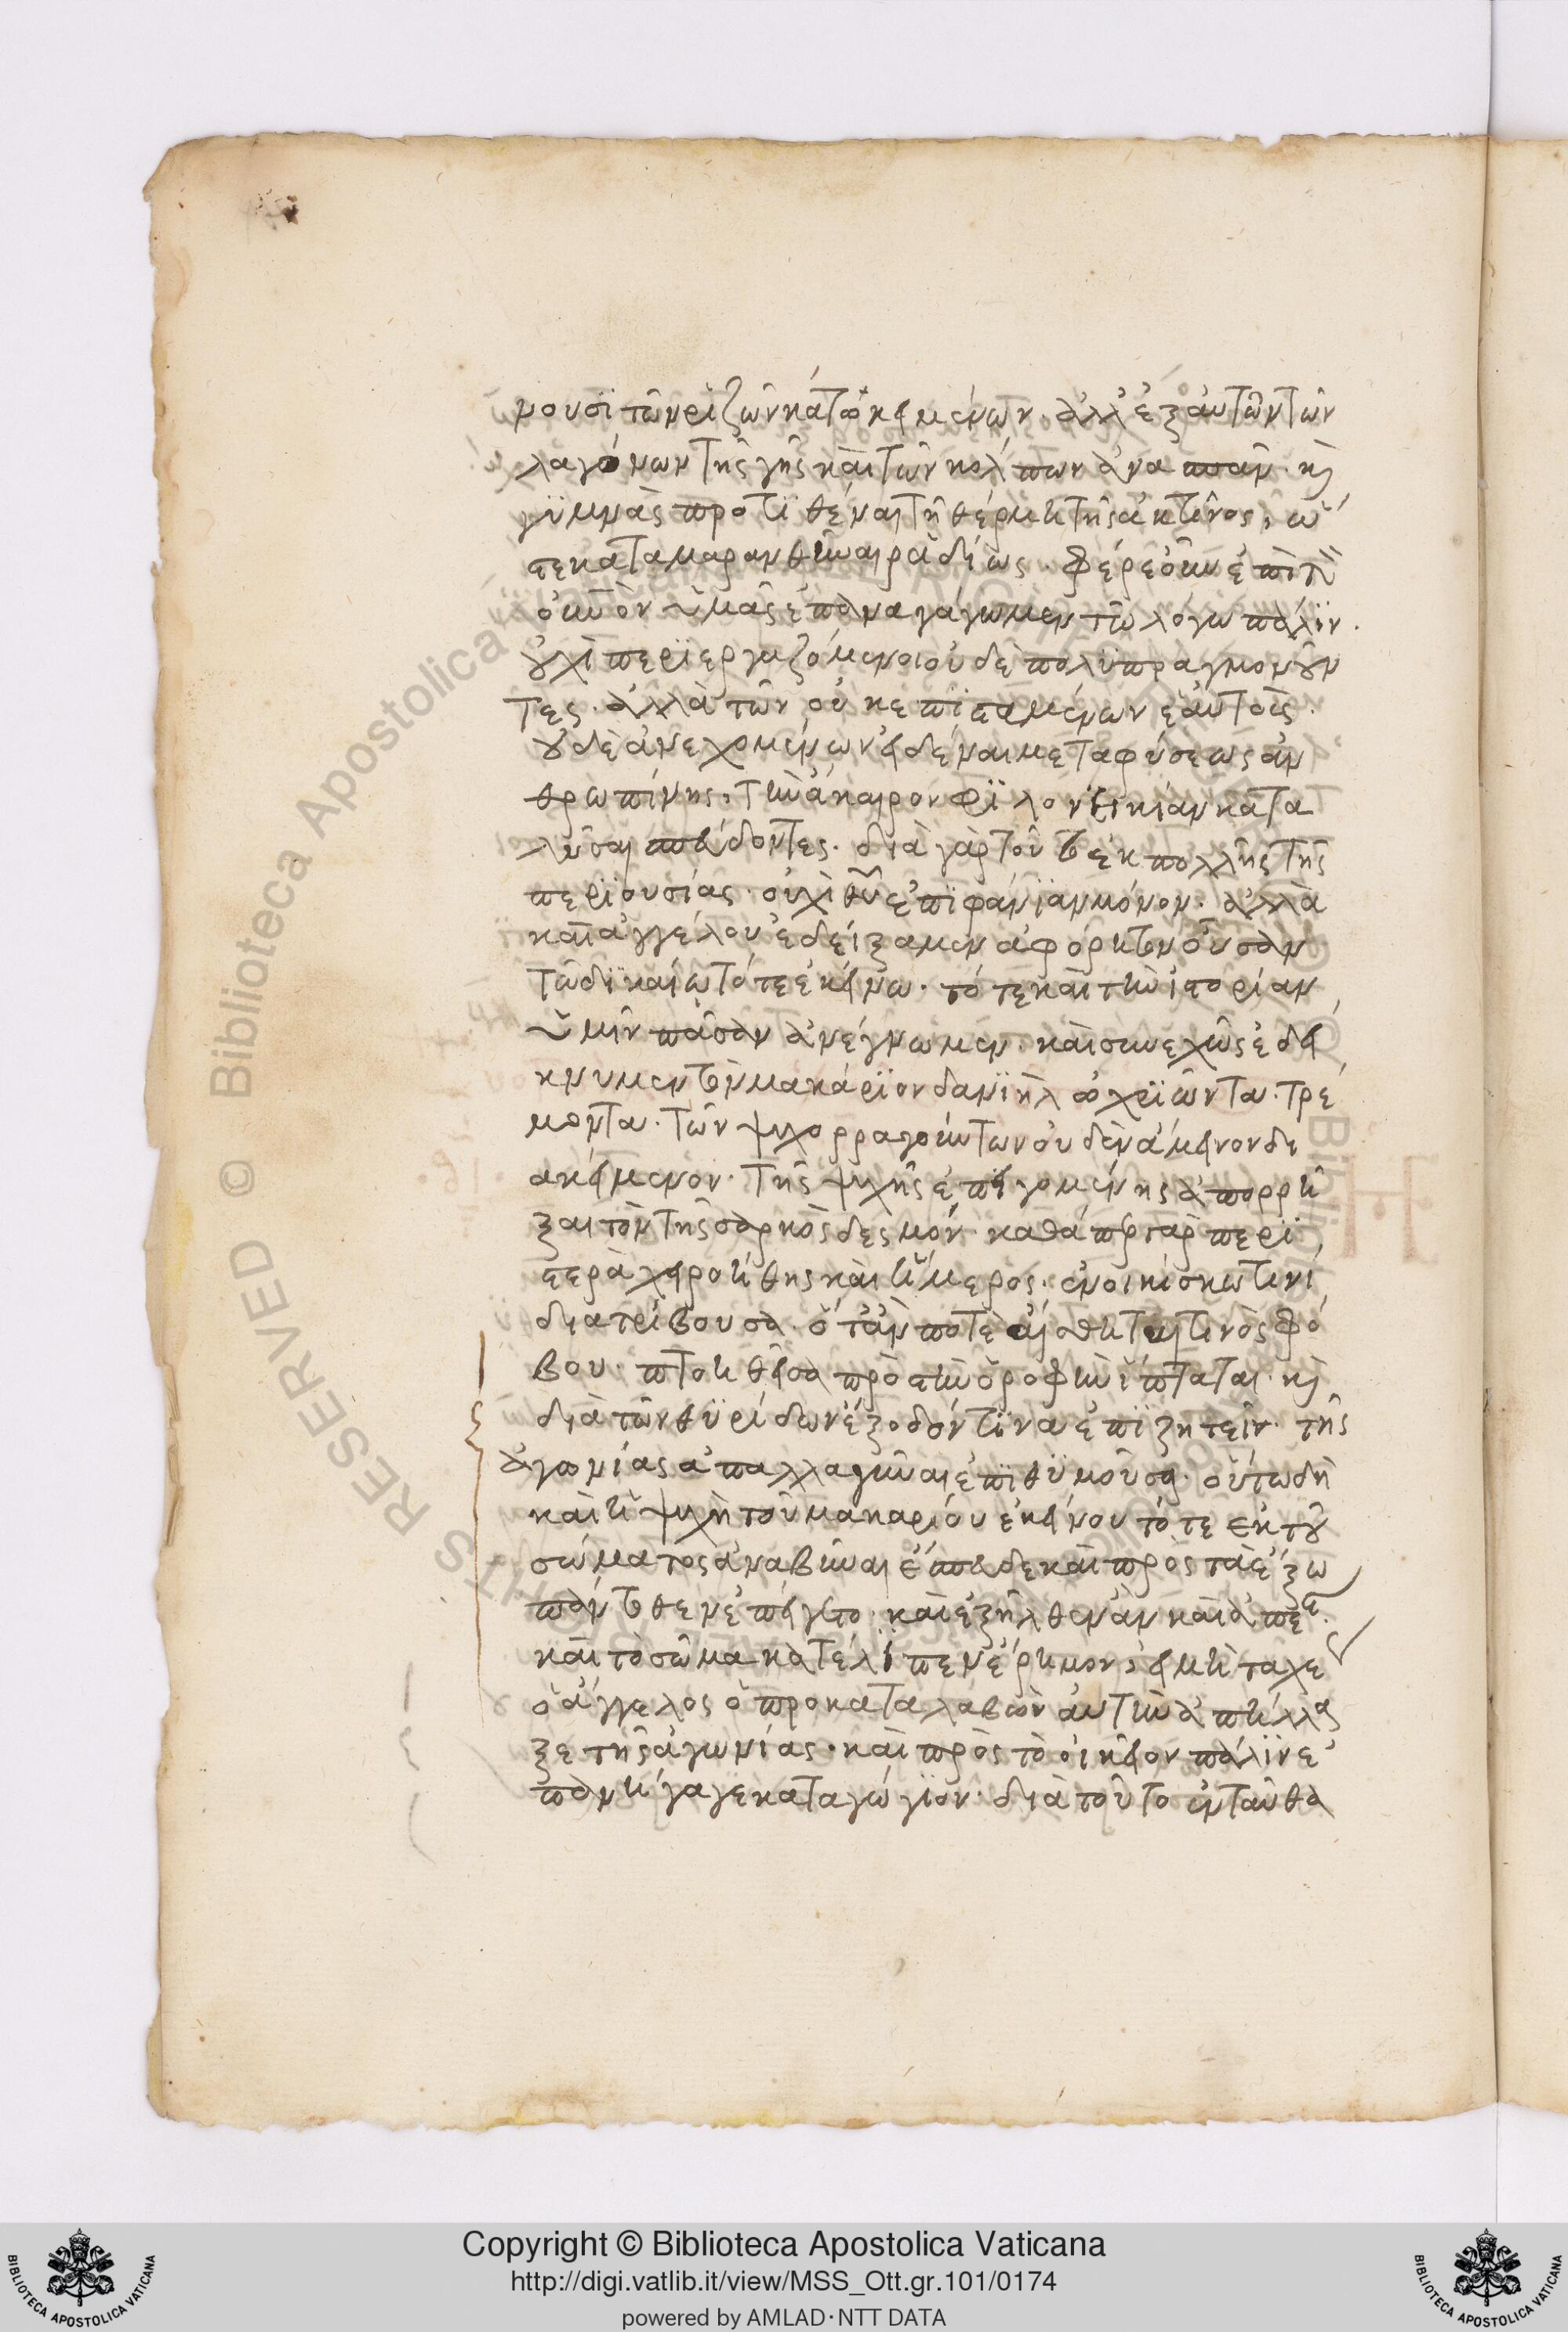 μουσϊ τῶν ριζῶν κάτω κειμένων. ἀλλ' ἐξ αὐτῶν τῶν
λαγόνων τῆς γῆς καὶ τῶν κόλπων ἀνασπᾶν. κὶ
γϋμνὰς προτϊθέναι τῆ θέρμη τῆς ἀκτῖνος, ὥ
στε καταμαρανθῆναι ραδίως. φέρε οὖν ἐπὶ τὸ
οὐνὸν ὑμᾶς ἐπαναγάγωμεν τῶ λόγω πάλϊν.
οὐχὶ περϊεργαζόμενοι οὐδὲ πολϋπραγμονοῦν
τες. ἀλλὰ τῶν οὐκ ἐπϊσταμένων ἑαυτοὺς.
οὐδὲ ἀνεχομένων εἰδέναι μετὰ φύσεως ἀν
θρωπίνης, τὴν ἄκαιρον φϊλονεικίαν κατα
λῦσαι σπεύδοντες. διὰ γὰρ τοῦτο ἐκ πολλῆς τῆς
περϊουσίας. οὐχὶ θῦ ἐπϊφάνϊαν μόνον. ἀλλὰ
καὶ ἀγγέλου ἐδείξαμεν ἀφόρητον οὖσαν
τῶ δϊκαίω τότε ἐκείνω. τότε καὶ τὴν ἱστορίαν
ὑμῖν πᾶσαν ἀνέγνωμεν. καὶ συνεχῶς ἐδεί
κνυμεν τὸν μακάρϊον δανϊὴλ ὠχρϊῶντα. τρέ
μοντα. τῶν ψυχορραγούντων οὐδὲν ἄμεινον δι
ακείμενον. τῆς ψυχῆς ἐπειγομένης ἀπορρῆ
ξαι τὸν τῆς σαρκὸς δεσμόν. καθάπερ γὰρ περϊ
στερὰ χειροήθης καὶ ἥμερος. ἐνοικίσκω τινὶ
διατρίβουσα. ὅταν ποτὲ αἴσθηται τινὸς φό
βου. πτοηθεῖσα πρὸς τὴν ὀροφὴν ἵπταται. κὶ
διὰ τῶν θϋρίδων ἔξοδόν τϊνα ἐπϊζητεῖν. τῆς
ἀγωνίας ἀπαλλαγῆναι ἐπϊθϋμοῦσα. οὕτω δὴ
καὶ ἡ ψυχὴ τοῦ μακαρίου ἐκείνου τότε ἐκ τοῦ
σώματος ἀναβῆναι ἔσπευδε καὶ πρὸς τὰ ἔξω
πάντοθεν ἐπείγετο. καὶ ἐξῆλθεν ἂν καὶ ἀπέστη.
καὶ τὸ σῶμα κατέλϊπεν ἔρημον, εἰ μὴ ταχέως
ὁ ἄγγελος ὁ προκαταλαβὼν αὐτὴν ἀπήλλα
ξε τῆς ἀγωνίας. καὶ πρὸς τὸ οἰκεῖον πάλϊν ἐ
πανήγαγε καταγώγϊον. διὰ τοῦτο ἐνταῦθα
Copyright © Biblioteca Apostolica Vaticana
http://digi.vatlib.it/view/MSS_Ott.gr.101/0174
powered by AMLAD·NTT DATA